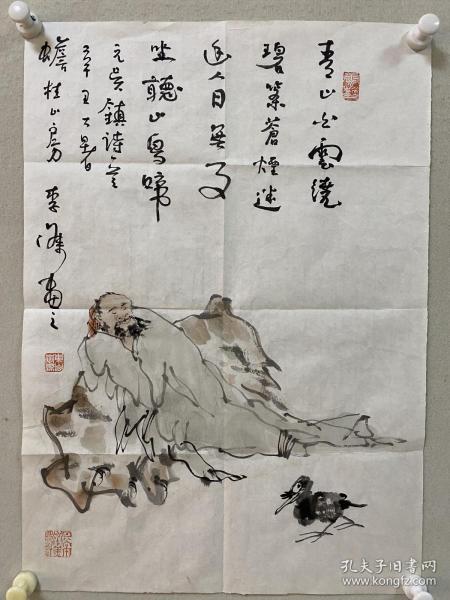 青山白雲繞
碧澗蒼煙迷
幽人日無事
坐聽山鳥啼
元吳鎮詩意
蟾桂山房 李滌畫之
孔夫子旧书网
www.kongfz.com